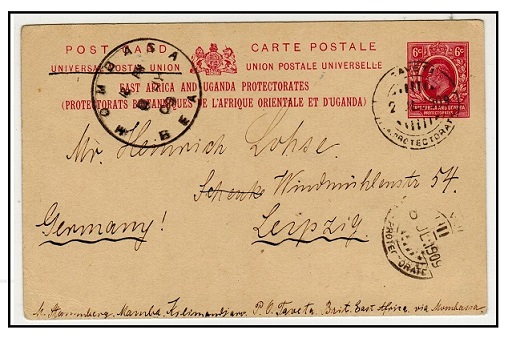 POST CARD CARTE POSTALE
UNIVERSAL POSTAL UNION UNION POSTALE UNIVERSELLE
EAST AFRICA AND UGANDA PROTECTORATES
(PROTECTORATS BRITANNIQUES DE L'AFRIQUE ORIENTALE ET D'UGANDA)
6c 6c
MOMBASA
Mr. Heinrich Lohse
Schenk Windmühlenstr 54.
Germany! Leipzig.
JU 1909
Mamba, Kilemandjaro P.O. Taveta Brit. East Africa, via Mombassa